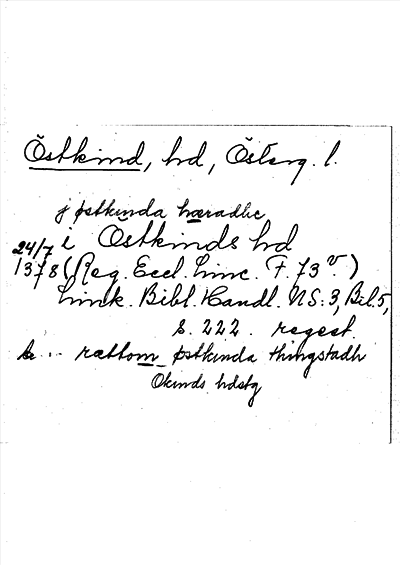 Östkind, hd, Österg. l.
j østkinda hæradhe
i Ostkinds hd
24/7
1378 (Reg. Eccl. Linc. F. 73 v.)
Link. Bibl. Handl. NS: 3, Bil. 5,
s. 222. regest.
... rættom østkinda thingstadh
Ökinds hdstg